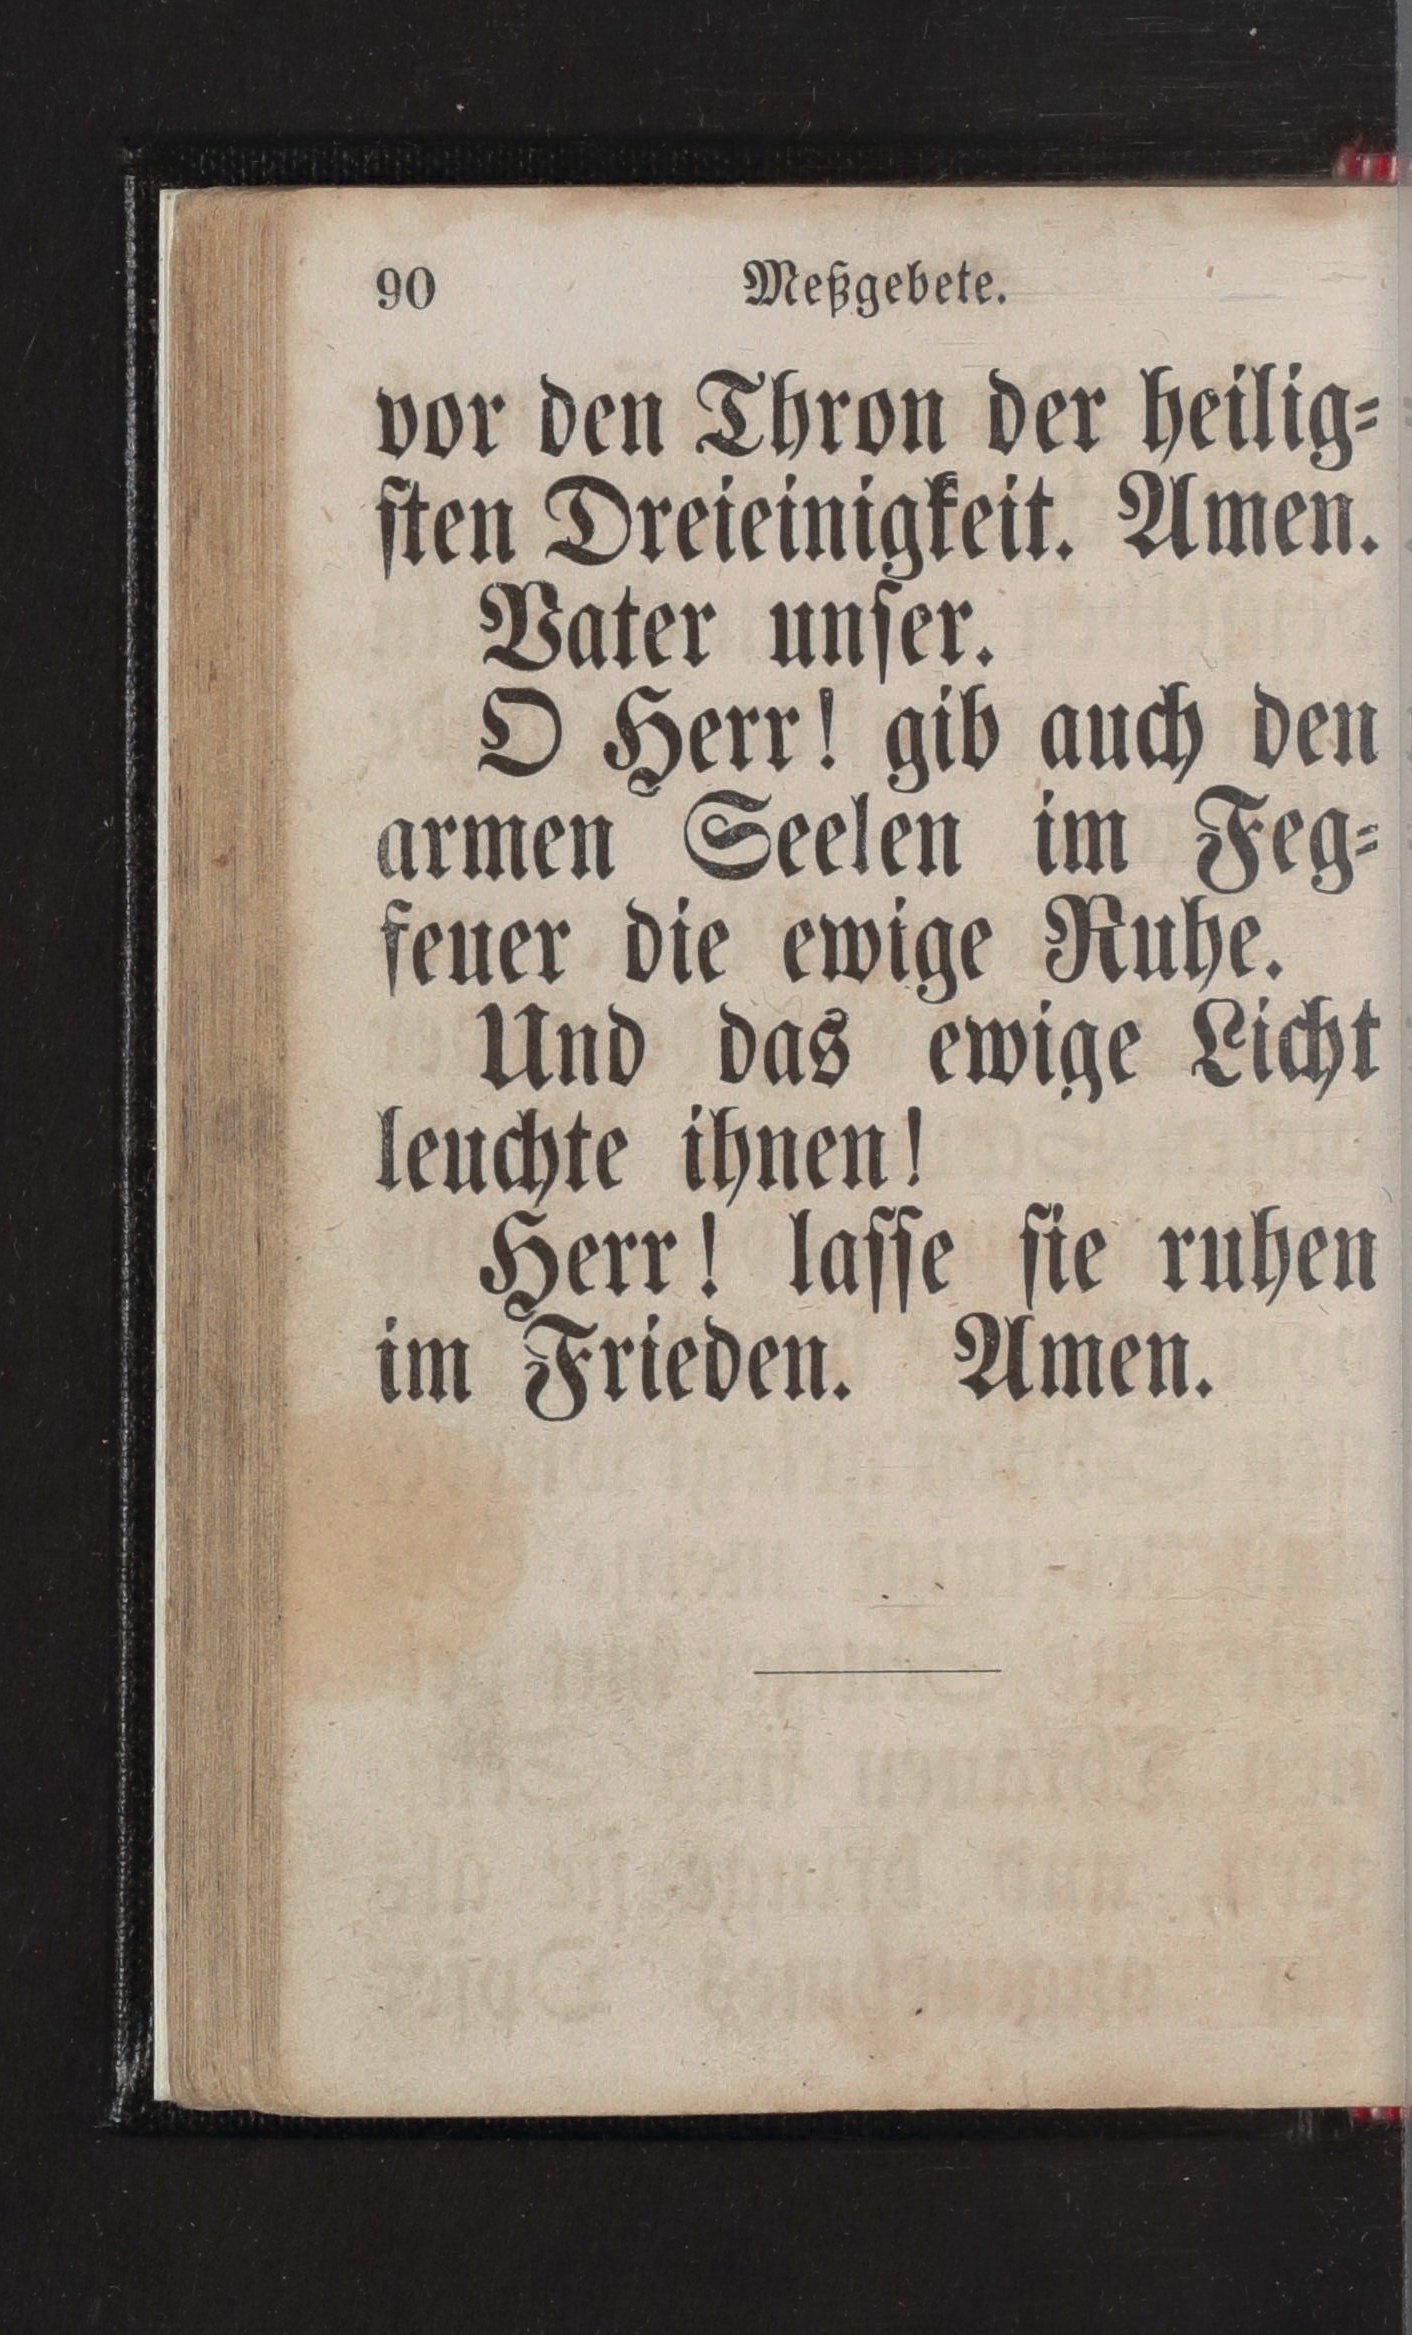 90 Meßgebete.
vor den Thron der heilig-
sten Dreieinigkeit. Amen.
Vater unser.
O Herr! gib auch den
armen Seelen im Feg-
feuer die ewige Ruhe.
Und das ewige Licht
leuchte ihnen!
Herr! lasse sie ruhen
im Frieden. Amen.